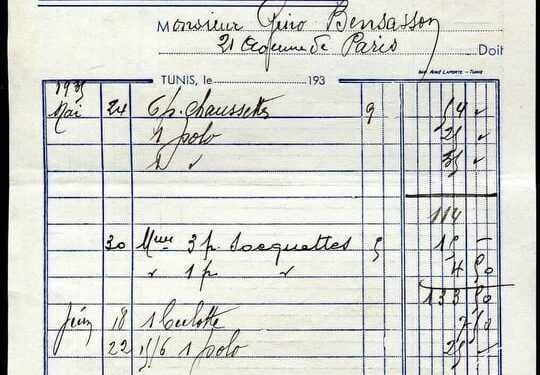 Monsieur Gino Bensasson
21 Avenue de Paris
Doit
IMP. RENÉ LAPORTE - TUNIS
TUNIS, le 193
1935
Mai 24 6 p. chaussettes 9 54 -
1 polo 25 -
2 " 35 -
114
30 Mme 3 p. socquettes 5 15 -
" 1 p " 4 50
133 50
Juin 18 1 culotte 7 50
22 1 polo 25 -